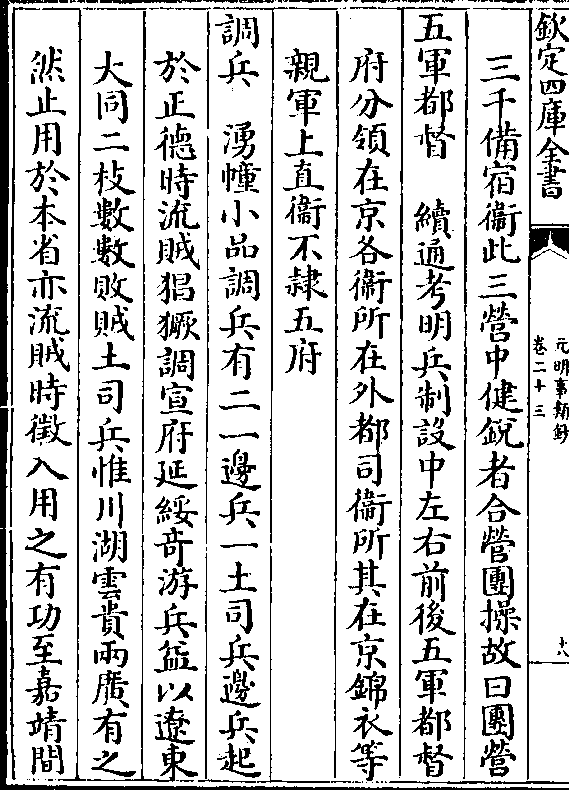 欽定四庫全書
元明事類鈔
卷二十三
十八
三千備宿衞此三營中健銳者合營團操故曰團營
五軍都督　續通考明兵制設中左右前後五軍都督
府分領在京各衞所在外都司衞所其在京錦衣等
親軍上直衞不隷五府
調兵　湧幢小品調兵有二一邊兵一土司兵邊兵起
於正德時流賊猖獗調宣府延綏竒游兵益以遼東
大同二枝數數敗賊土司兵惟川湖雲貴兩廣有之
然止用於本省亦流賊時徵入用之有功至嘉靖間